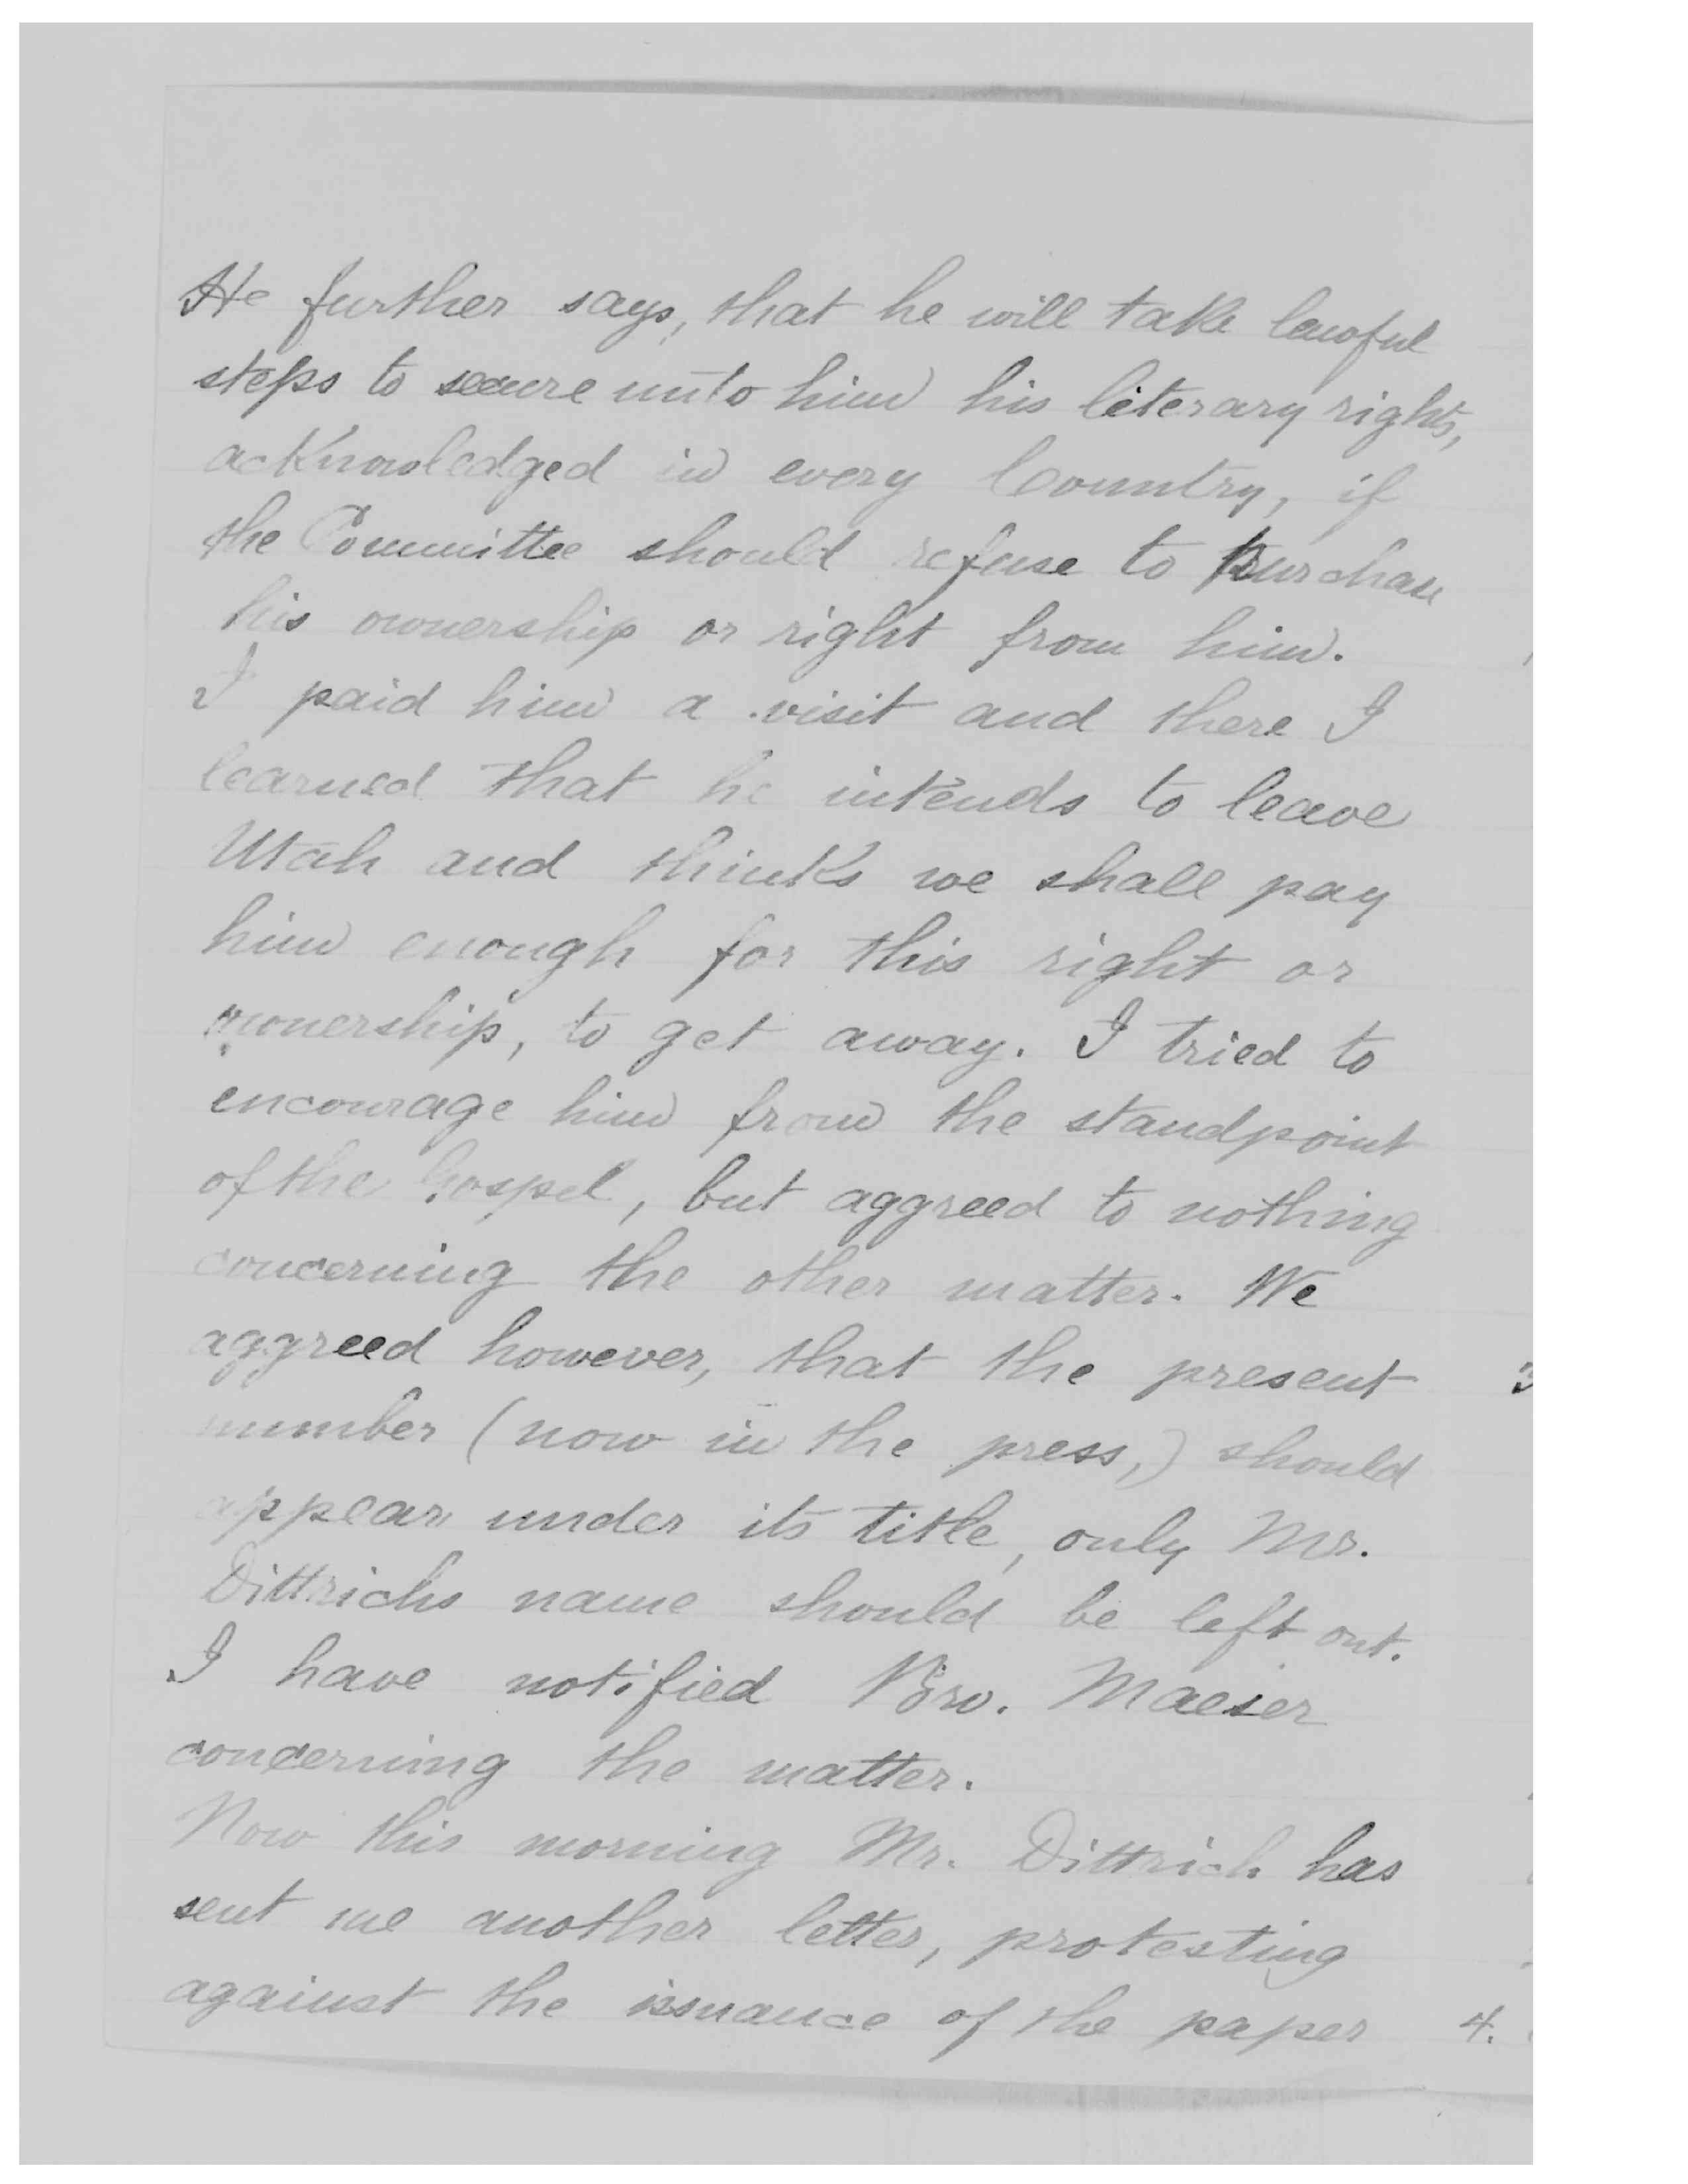 He further says, that he will take lawful
steps to secure unto him his literary rights,
acKnowledged in every Country, if
the Committee should refuse to purchase
his ownership or right from him.
I paid him a visit and there I
learned that he intends to leave
Utah and thinks we shall pay
him enough for this right or
ownership, to get away. I tried to
encourage him from the standpoint
of the Gospel, but aggreed to nothing
concerning the other matter. We
aggreed however, that the present
number (now in the press,) should
appear under its title, only Mr.
Dittrichs name should be left out.
I have notified Bro. Maeser
concerning the matter.
Now this morning Mr. Dittrich has
sent me another letter, protesting
against the issuance of the paper
4.